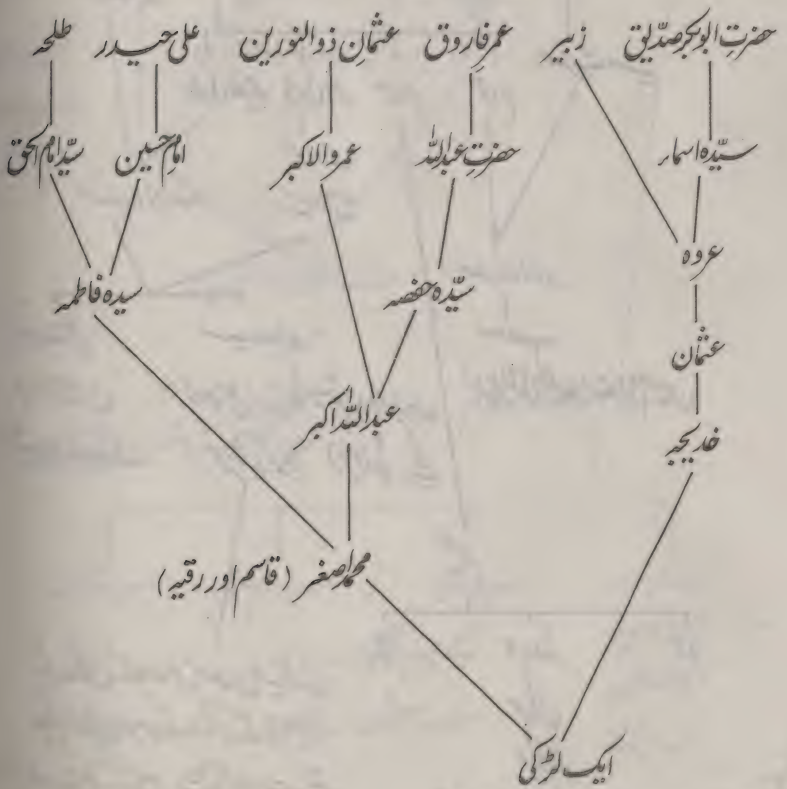 حضرتِ ابوبکر صدّیق زبیر عمر فاروق عثمانِ ذوالنورین علی حیدر طلحہ
سیّدہ اسمار حضرتِ عبداللہ عمرو الاکبر امام حسین سیّد ام الحق
عروہ
سیّدہ حفصہ سیدہ فاطمہ
عثمان
عبداللہ اکبر
خدیجہ
محمد اصغر (قاسم اور رقیہ)
ایک لڑکی